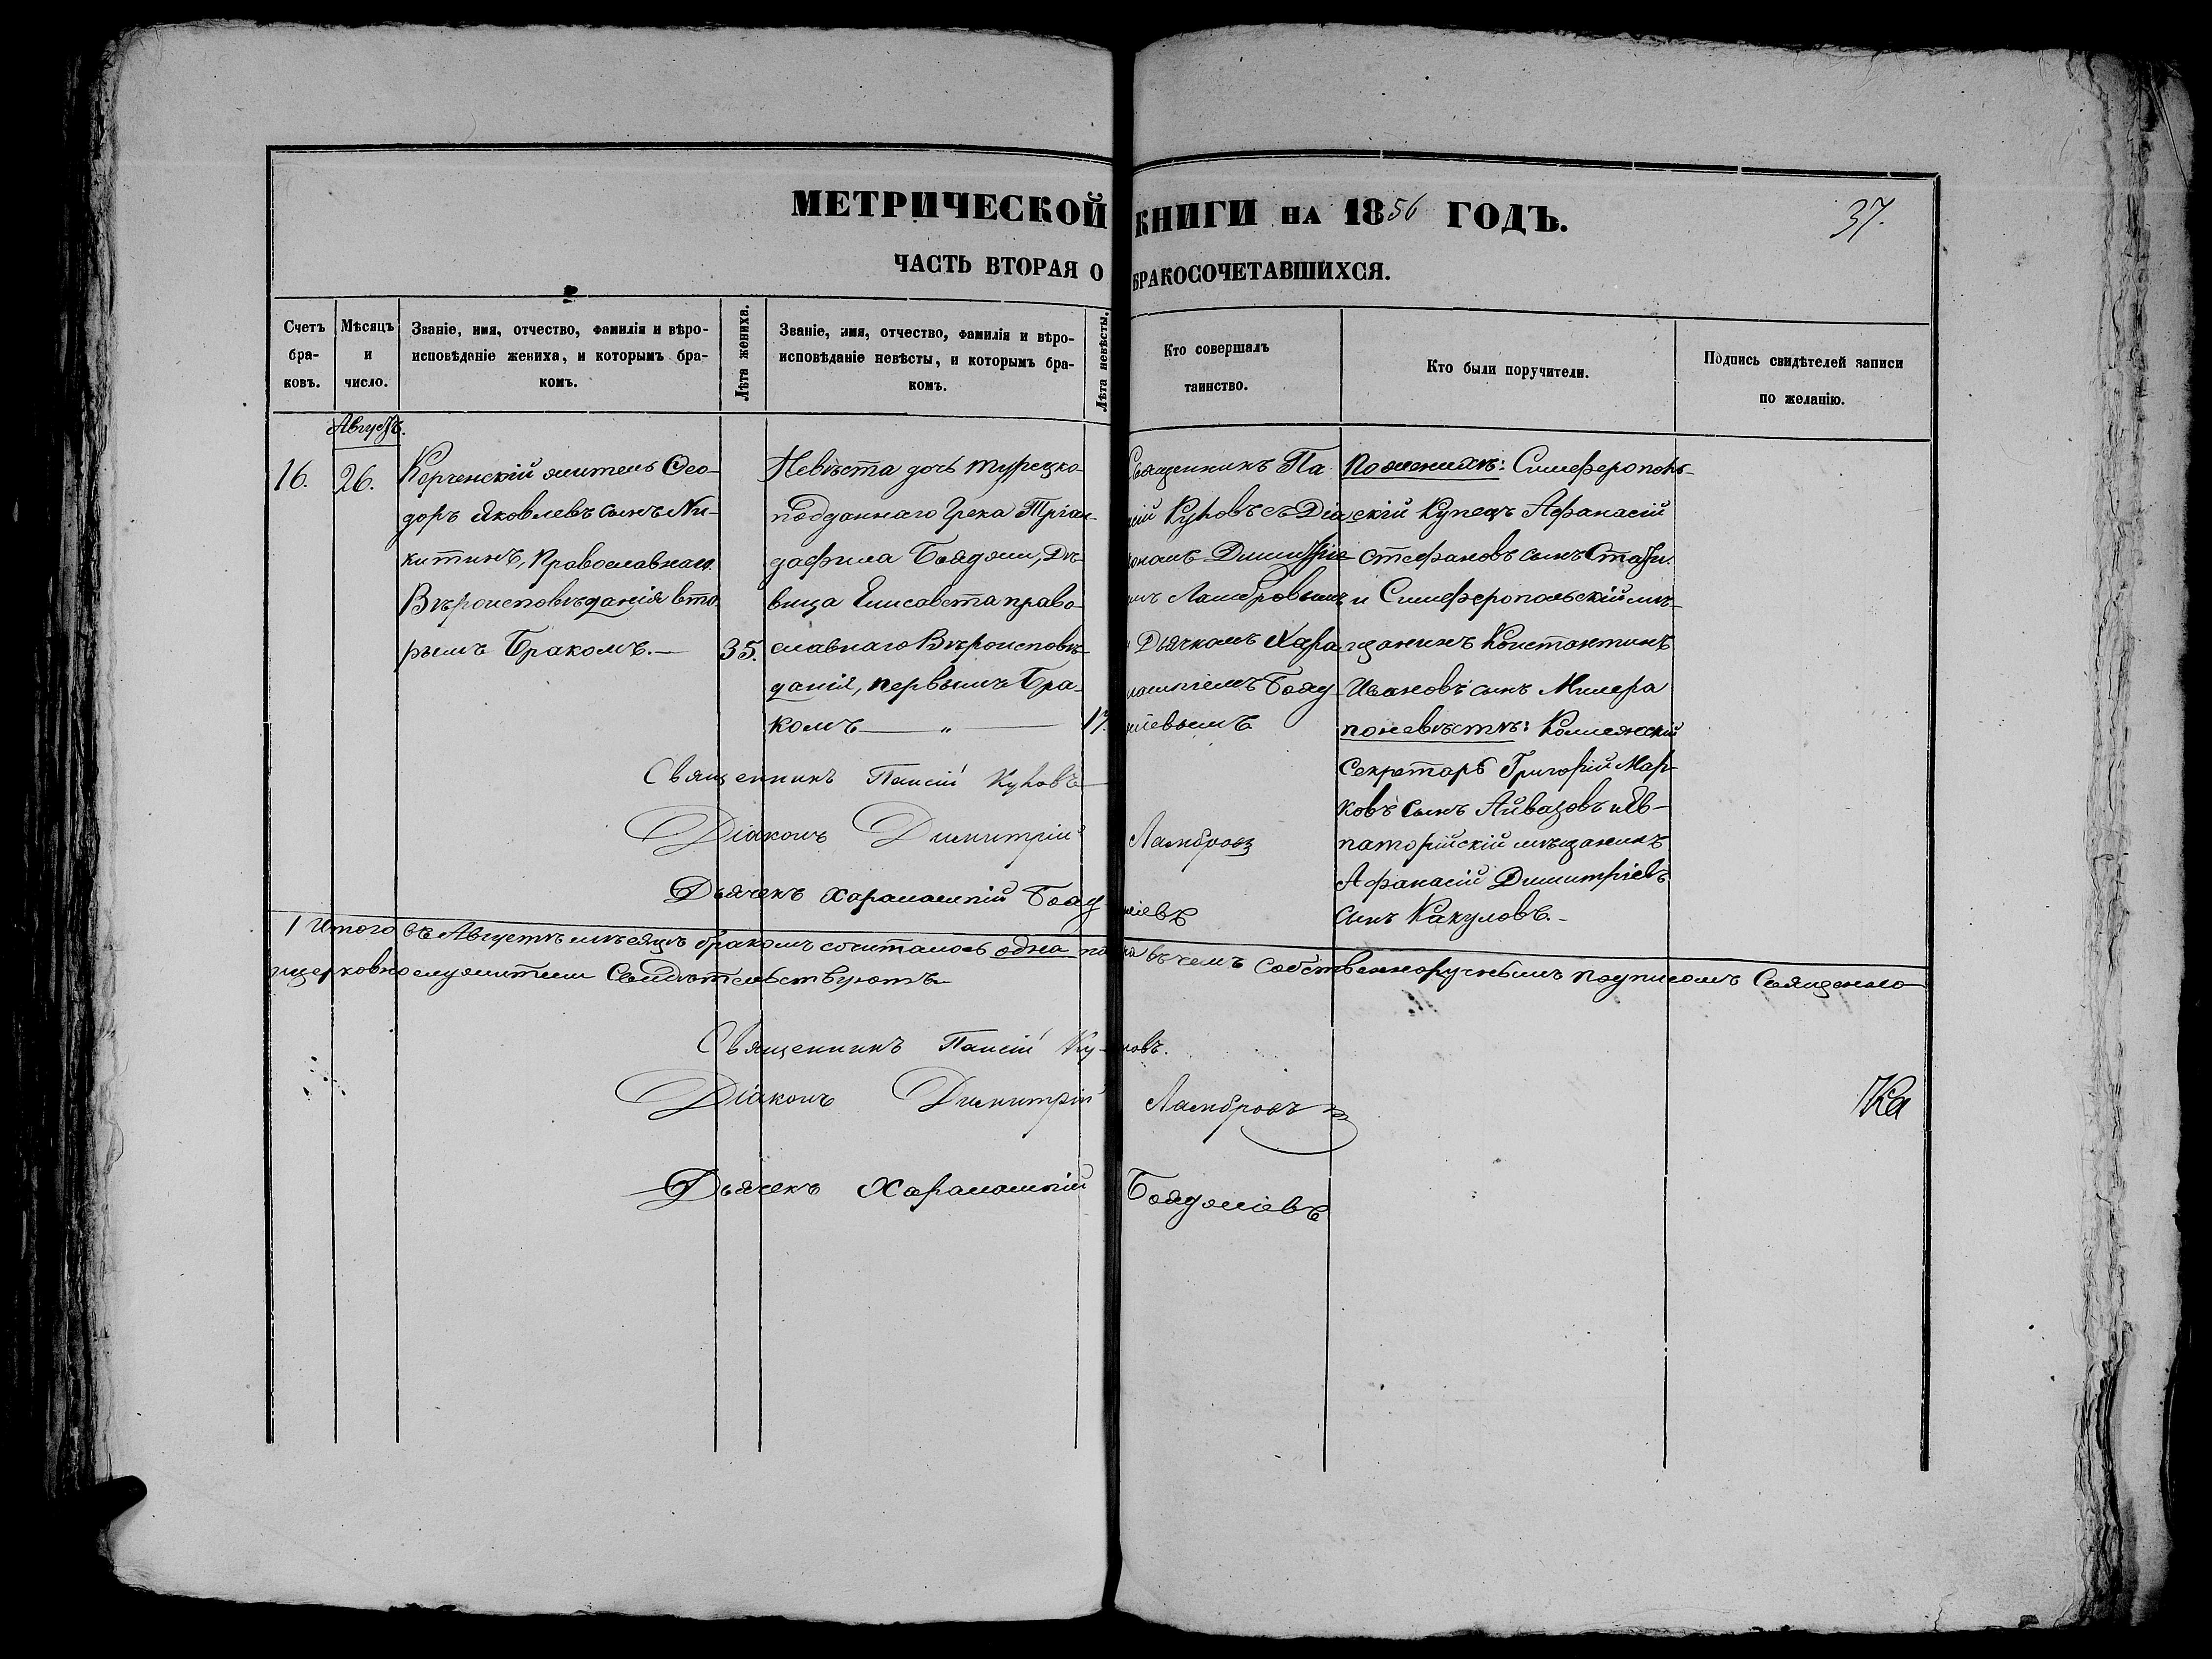 МЕТРИЧЕСКОЙ КНИГИ НА 1856 ГОДЪ.
37.
ЧАСТЬ ВТОРАЯ О БРАКОСОЧЕТАВШИХСЯ.
Счетъ
бра-
ковъ.
Мѣсяцъ
и
число.
Званіе, имя, отчество, фамилія и вѣро-
исповѣданіе жениха, и которымъ бра-
комъ.
Лѣта жениха.
Званіе, имя, отчество, фамилія и вѣро-
исповѣданіе невѣсты, и которымъ бра-
комъ.
Лѣта невѣсты.
Кто совершалъ
таинство.
Кто были поручители.
Подпись свидѣтелей записи
по желанію.
Августъ.
16.
26.
Керченскій житель Ѳео-
доръ Яковлевъ сынъ Ни-
китинъ, Православнаго
Вѣроисповѣданія вто-
рымъ Бракомъ.—
35.
Невѣста дочь турецко-
подданнаго Грека Тріан-
дафила Бояджи, Дѣ-
вица Елисавета право-
славнаго Вѣроисповѣ-
данія, первымъ Бра-
комъ — „ —
17.
Священникъ Па-
исій Куповъ съ Діа
кономъ Димитріе-
мъ Ламбровымъ
и Дьячкомъ Хара-
лампіемъ Бояд-
жіевымъ
По женихѣ: Симферополь-
скій Купецъ Афанасій
Стефановъ сынъ
и Симферопольскій мѣ-
щанинъ Константинъ
Ивановъ сынъ Милера
по невѣстѣ:
Секретарь Григорій Мар-
ковъ сынъ Айвазовъ и Ев-
паторійскій мѣщанинъ
Афанасій Димитріевъ
сынъ Какуловъ.-
Священникъ Паисій Куповъ
Діаконъ Димитрій Ламбровъ
Дьячекъ Харалампій Бояджіевъ
1 Итого въ Августѣ мѣсяцѣ бракомъ сочиталось одна пара въ чемъ собственноручнымъ подписомъ Священно
и церковнослужители Свидѣтельствуютъ
Священникъ Паисій Куповъ.
Діаконъ Димитрій Ламбровъ
Дьячекъ Харалампій Бояджіевъ